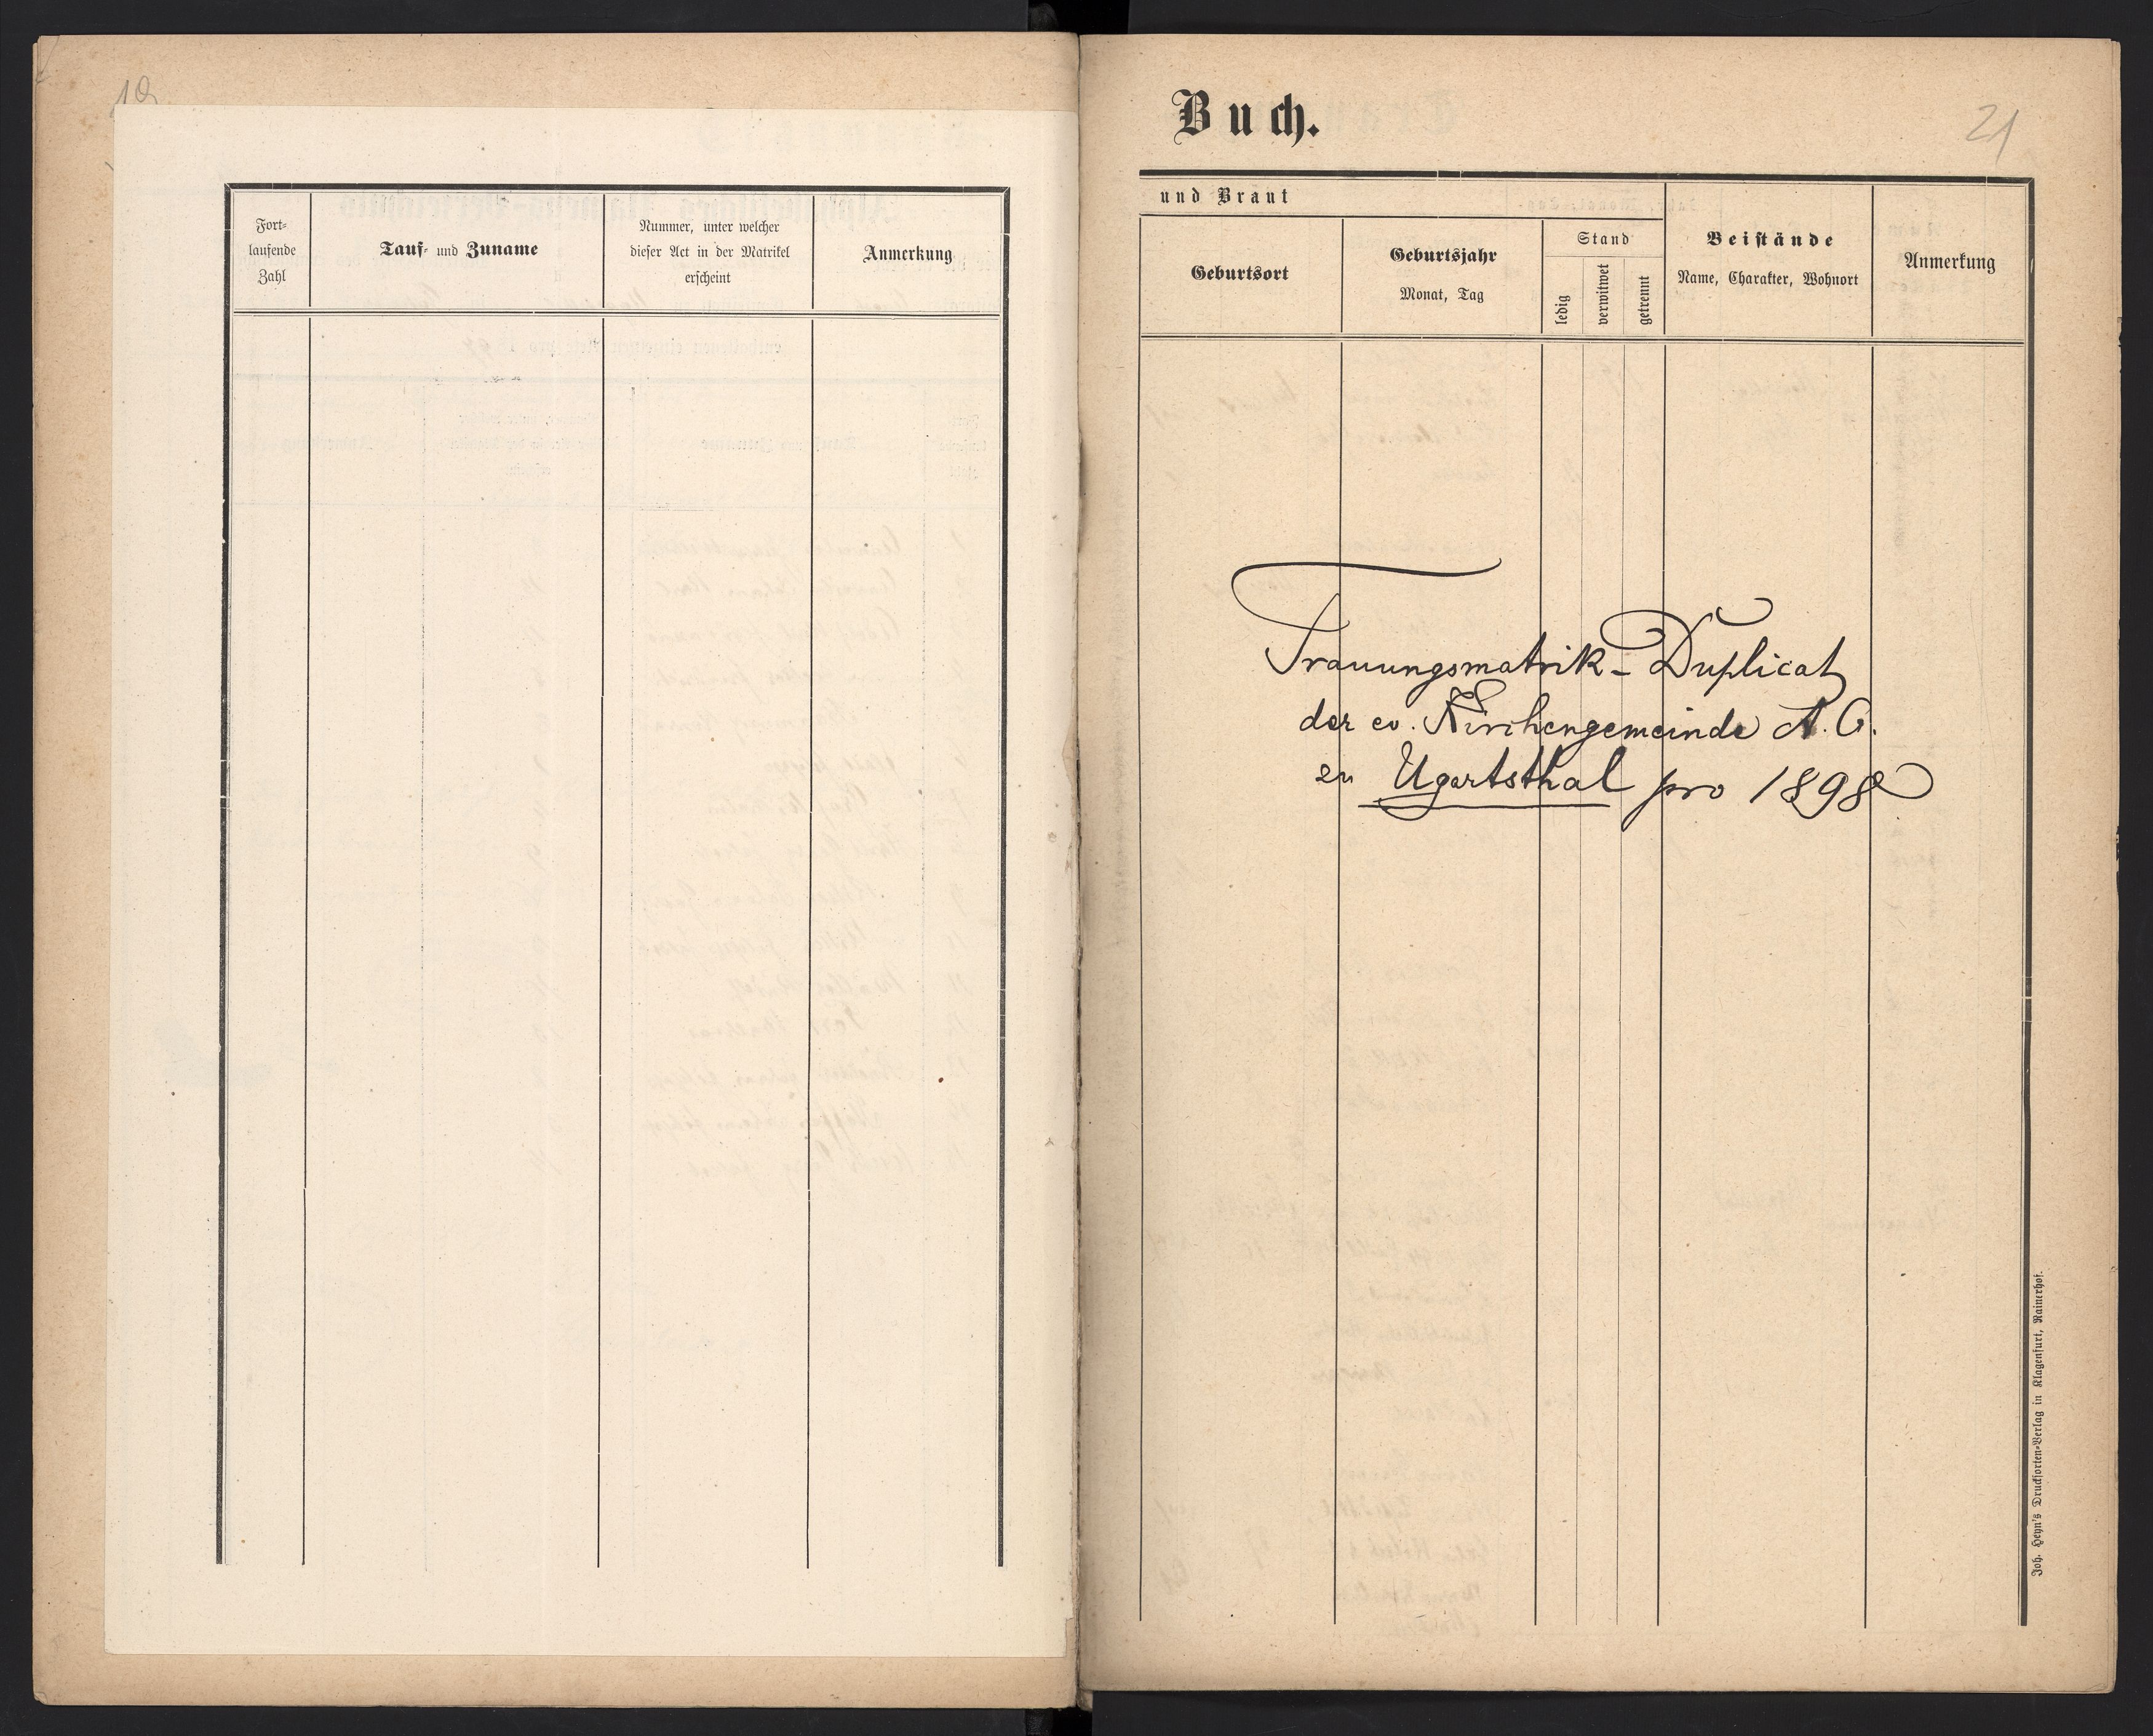 Fort-
laufende
Zahl
Tauf- und Zuname
Nummer, unter welcher
dieser Act in der Matrikel
erscheint
Anmerkung
Buch.
21
und Braut
Geburtsort
Geburtsjahr
Monat, Tag
Stand
ledig
verwitwet
getrennt
Beistände
Name, Charakter, Wohnort
Anmerkung
Trauungsmatrik-Duplicat
der ev. Kirchengemeinde A. C.
zu Ugartsthal pro 1898
Joh. Heyn's Drucksorten-Verlag in Klagenfurt, Rainerhof.